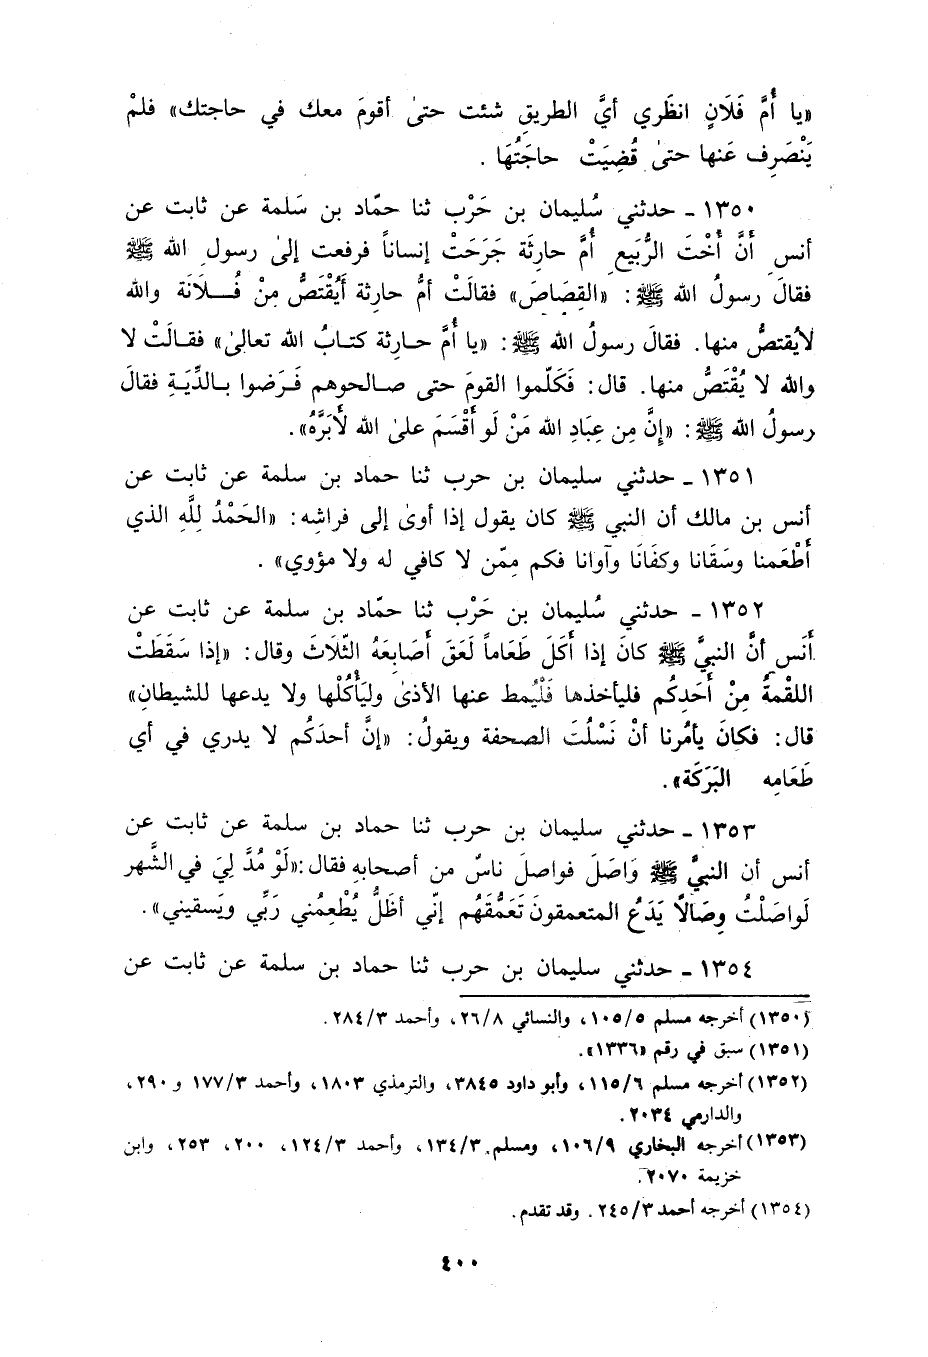 «يا أُمَّ فَلَانٍ انظَري أيَّ الطريقِ شئت حتىٰ أقومَ معك في حاجتك» فلمْ
يَنْصَرِف عَنها حتىٰ قُضِيَتْ حاجَتُهَا .
١٣٥٠ ـ حدثني سُليمان بن حَرْب ثنا حمّاد بن سَلمة عن ثابت عن
أنس أَنَّ أُخْتَ الرُّبَيع أُمَّ حارثَة جَرَحَتْ إنساناً فرفعت إلىٰ رسول الله ﷺ
فقالَ رسولُ الله ﷺ : «القِصَاصَ» فقالَتْ أمُّ حارثة أَيُقْتَصُّ مِنْ فُـــلَانَة والله
لايُقتصُّ منها. فقالَ رسولُ الله ﷺ : «يا أُمَّ حـارِثة كتـابُ الله تعالىٰ» فقـالَتْ لا
والله لا يُقْتَصُّ منها. قال: فَكَلّموا القومَ حتى صـالحوهم فَـرَضوا بـالدِّيَـةِ فقالَ
رسولُ الله ﷺ : «إِنَّ مِن عِبَادِ الله مَنْ لَو أَقْسَمَ علىٰ الله لأَبَرَّهُ».
١٣٥١ ـ حدثني سليمان بن حرب ثنا حماد بن سلمة عن ثابت عن
أنس بن مالك أن النبي ﷺ كان يقول إذا أوىٰ إلى فراشِه: «الحَمْدُ لِلَّهِ الذي
أَطْعَمنا وسَقَانا وكفَانَا وآوانا فكم مِمّن لا كافي له ولا مؤوي» .
١٣٥٢ ـ حدثني سُليمان بن حَرْب ثنا حمّاد بن سلمة عن ثابت عن
أَنَس أنَّ النبيَّ ﷺ كانَ إذا أَكَلَ طَعَاماً لَعَقَ أَصَابِعَهُ الثّلاثَ وقال: «إذا سَقَطَتْ
اللقْمةُ مِنْ أَحَدِكُم فليأخذها فَلْيُمط عنها الأذىٰ وليَأْكُلْها ولا يدعها للشيطان»
قال: فكانَ يأمُرنا أنْ نَسْلُتَ الصحفة ويقولُ: «إنَّ أحدَكُم لا يدري في أي
طَعَامِه البَرَكَة».
١٣٥٣ ـ حدثني سليمان بن حرب ثنا حماد بن سلمة عن ثابت عن
أنس أن النبيَّ ﷺ وَاصَلَ فواصلَ ناسٌ من أصحابهِ فقال:«لَوْ مُدَّ لِيَ في الشَّهر
لَواصَلْتُ وِصَالاً يَدَعُ المتعمقونَ تَعَمُّقَهُم إنّي أظَلُّ يُطْعِمُني رَبِّي ويَسقيني».
١٣٥٤ ـ حدثني سليمان بن حرب ثنا حماد بن سلمة عن ثابت عن
(١٣٥٠) أخرجه مسلم ١٠٥/٥، والنسائي ٢٦/٨، وأحمد ٢٨٤/٣.
(١٣٥١) سبق في رقم «١٣٣٦».
(١٣٥٢) أخرجه مسلم ١١٥/٦، وأبو داود ٣٨٤٥، والترمذي ١٨٠٣، وأحمد ١٧٧/٣ و ٢٩٠،
والدارمي ٢٠٣٤.
(١٣٥٣) أخرجه البخاري ١٠٦/٩، ومسلم ١٣٤/٣، وأحمد ١٢٤/٣، ٢٠٠، ٢٥٣، وابن
خزيمة ٢٠٧٠.
(١٣٥٤) أخرجه أحمد ٢٤٥/٣. وقد تقدم.
٤٠٠